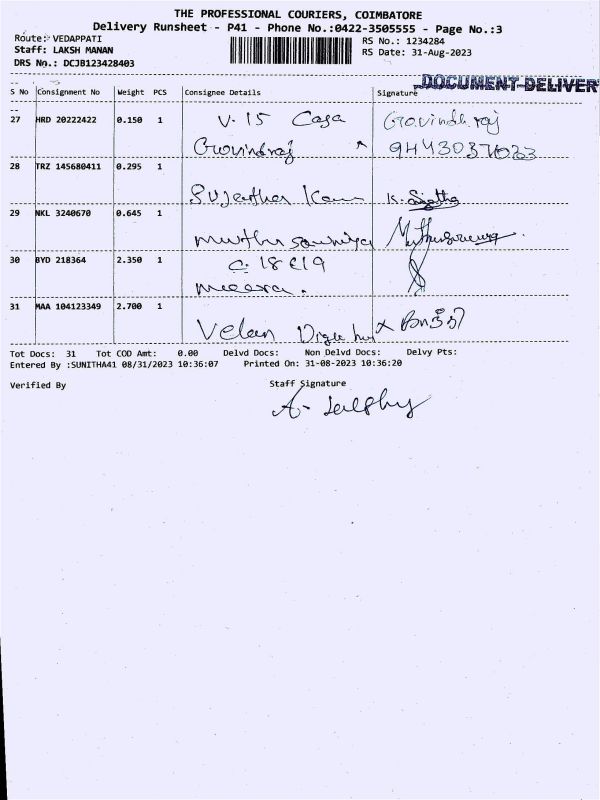 THE PROFESSIONAL COURIERS, COIMBATORE
Delivery Runsheet - P41 - Phone No.:0422-3505555 - Page No.:3
Route: VEDAPPATI
RS No.: 1234284
Staff: LAKSH MANAN
RS Date: 31-Aug-2023
DRS No.: DCJB123428403
DOCUMENT-DELIVER
S No Consignment No Weight PCS Consignee Details Signature
27 HRD 20222422 0.150 1 V. 15 Casa Govindh raj
Govindraj
28 TRZ 145680411 0.295 1
Sujatha K.
29 NKL 3240670 0.645 1
30 BYD 218364 2.350 1 C. 18 E19
meera.
31 MAA 104123349 2.700 1
Velan
Tot Docs: 31 Tot COD Amt: 0.00 Delvd Docs: Non Delvd Docs: Delvy Pts:
Entered By :SUNITHA41 08/31/2023 10:36:07 Printed On: 31-08-2023 10:36:20
Verified By Staff Signature